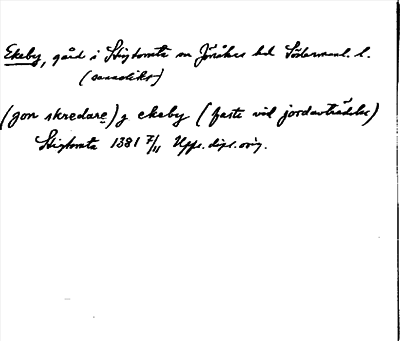 Ekeby, gård i Stigtomta sn Jönåkers hd Södermanl. l.
(vanadiks)
(jon skredare) j ekeby (faste vid jordavträdelse)
Stigtomta 1381 7/11 Uppl. dipl. orig.